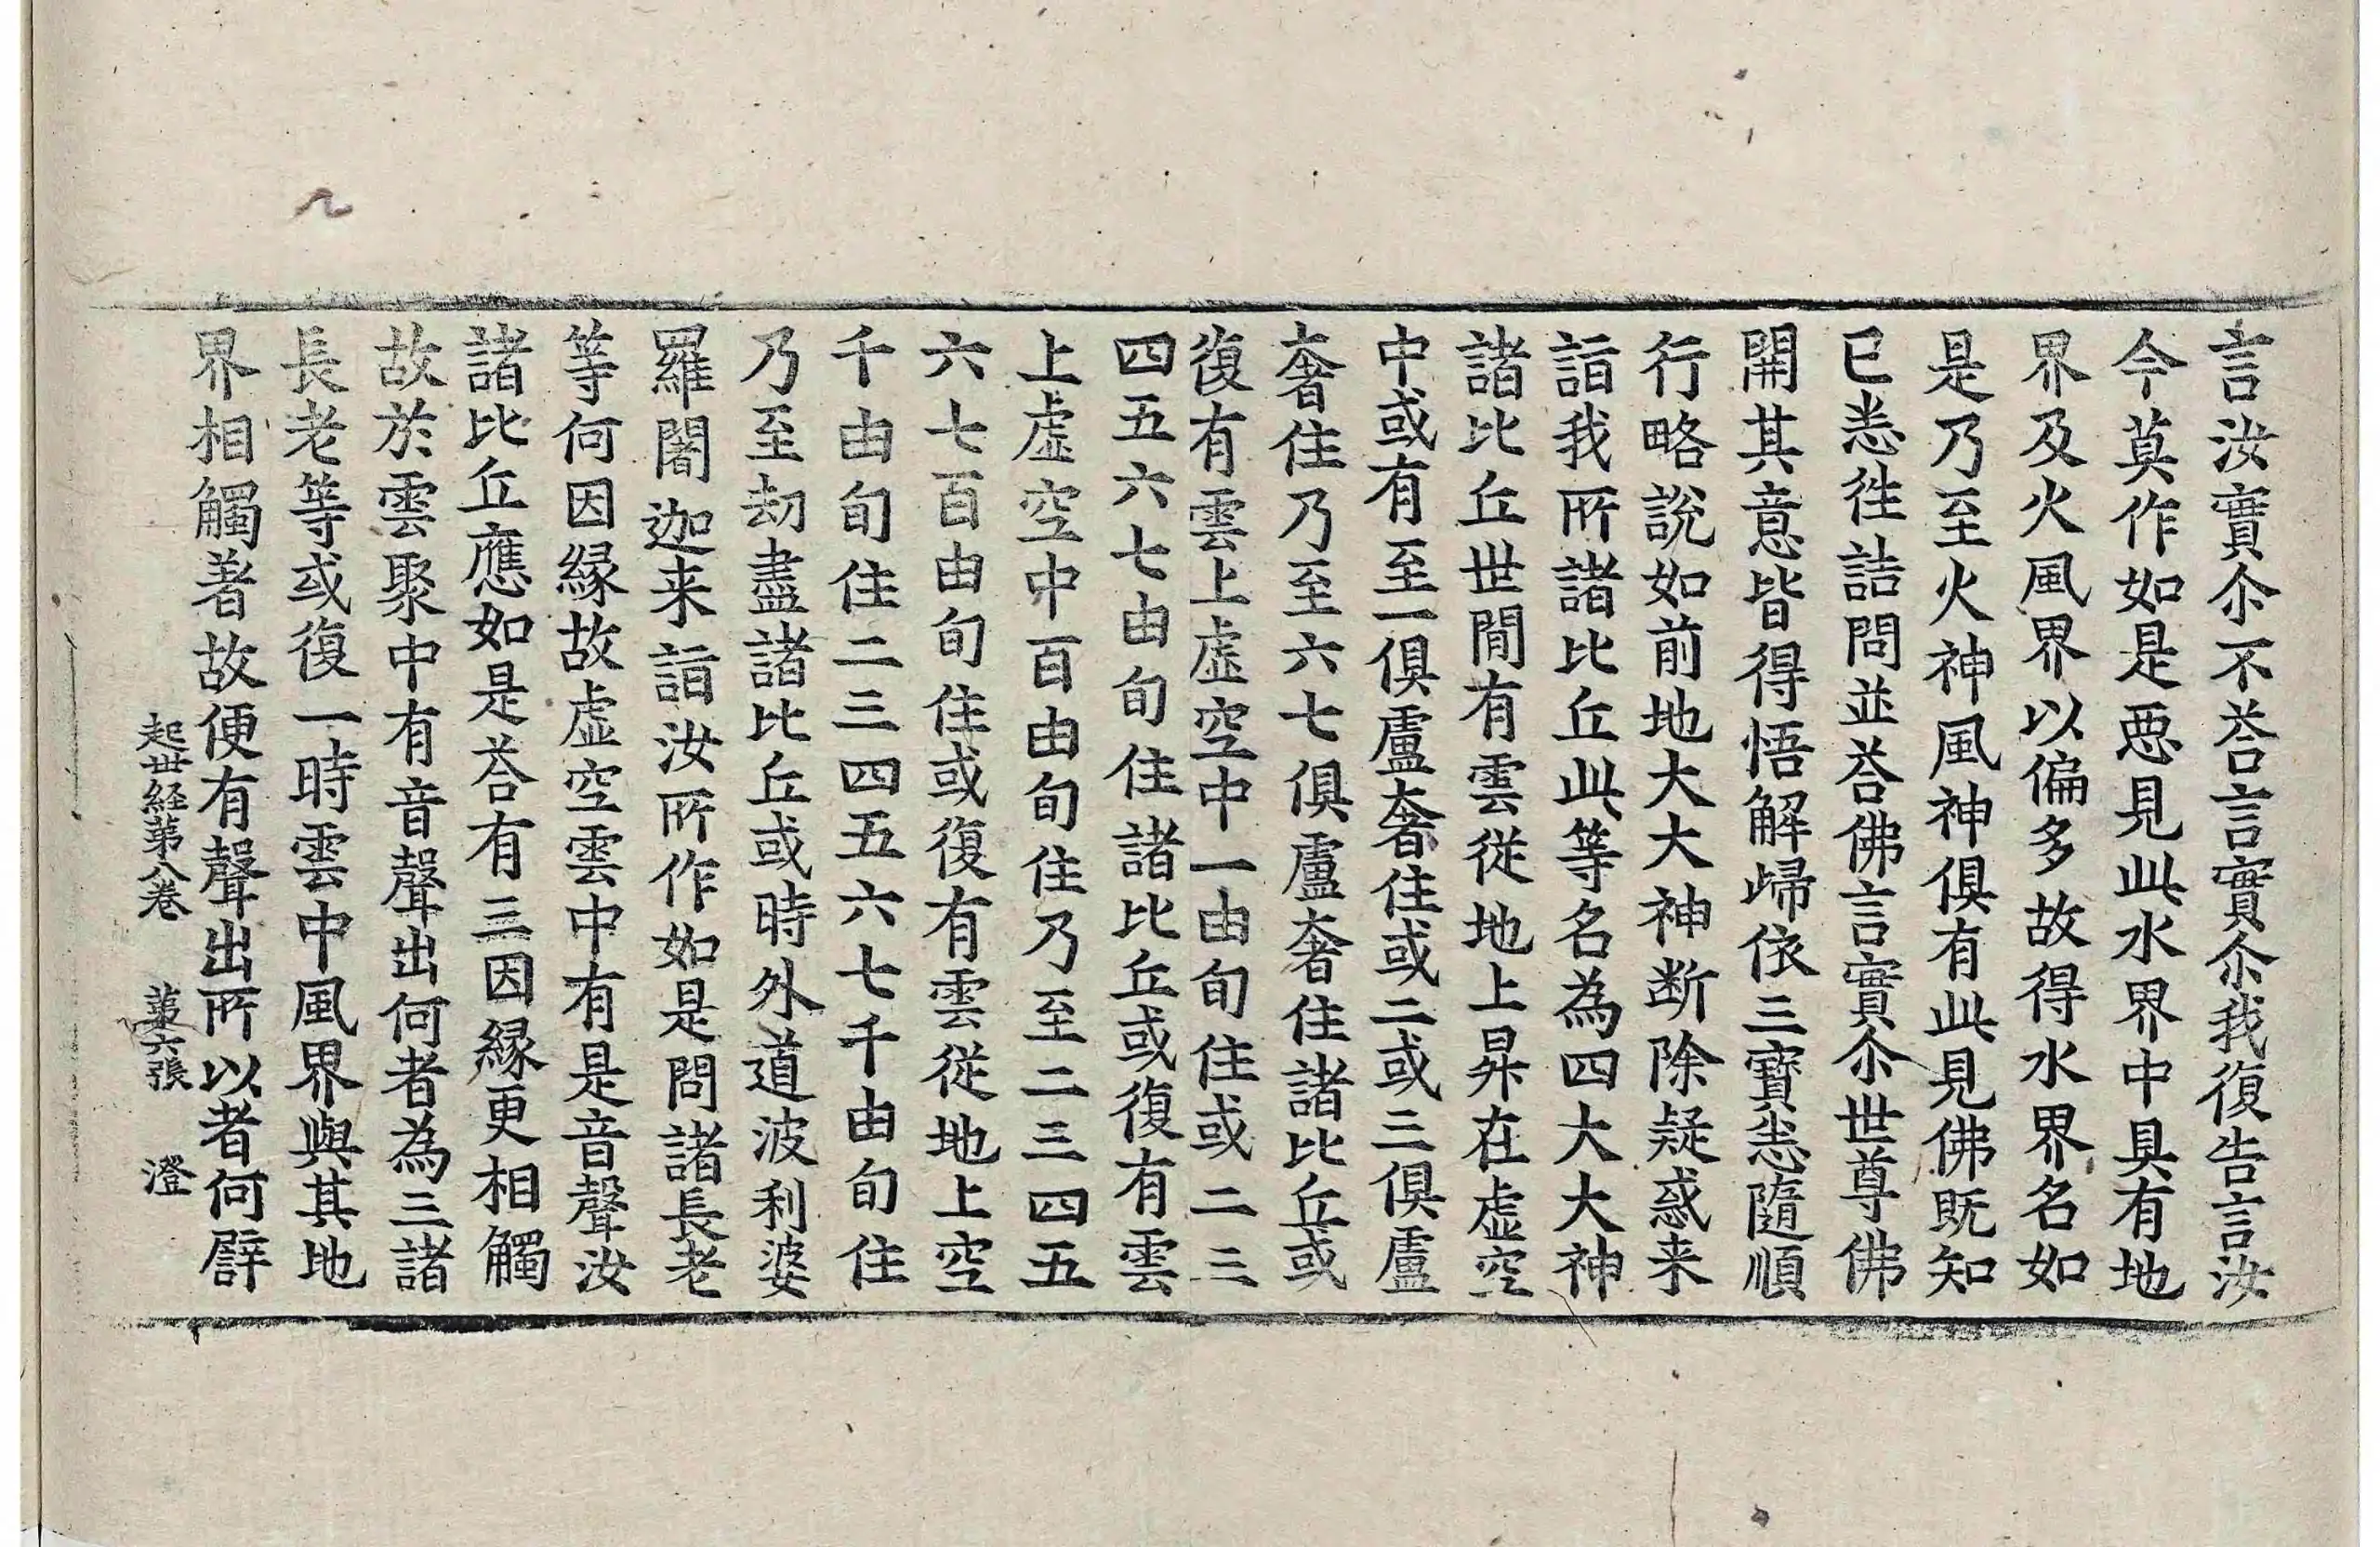 言汝實尒不荅言實尒我復告言汝
今莫作如是惡見此水界中具有地
界及火風界以偏多故得水界名如
是乃至火神風神俱有此見佛既知
已悉徃詰問並荅佛言實尒世尊佛
開其意皆得悟解歸依三寶悉隨順
行略說如前地大大神断除疑惑来
詣我所諸比丘此等名為四大大神
諸比丘世間有雲從地上昇在虛空
中或有至一俱盧奢住或二或三俱盧
奢住乃至六七俱盧奢住諸比丘或
復有雲上虛空中一由旬住或二三
四五六七由旬住諸比丘或復有雲
上虛空中百由旬住乃至二三四五
六七百由旬住或復有雲從地上空
千由旬住二三四五六七千由旬住
乃至劫盡諸比丘或時外道波利婆
羅闍迦来詣汝所作如是問諸長老
等何因緣故虛空雲中有是音聲汝
諸比丘應如是荅有三因緣更相觸
故於雲聚中有音聲出何者為三諸
長老等或復一時雲中風界與其地
界相觸著故便有聲出所以者何譬
起世経第八卷 第六張 澄